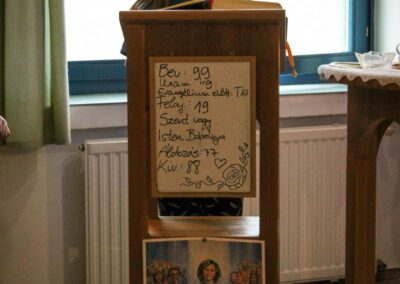 Bev: 99
Uram 119
Evangélium előtt: T10
Felaj: 19
Szent vagy
Isten Báránya
Áldozás: 77
Kiv: 88